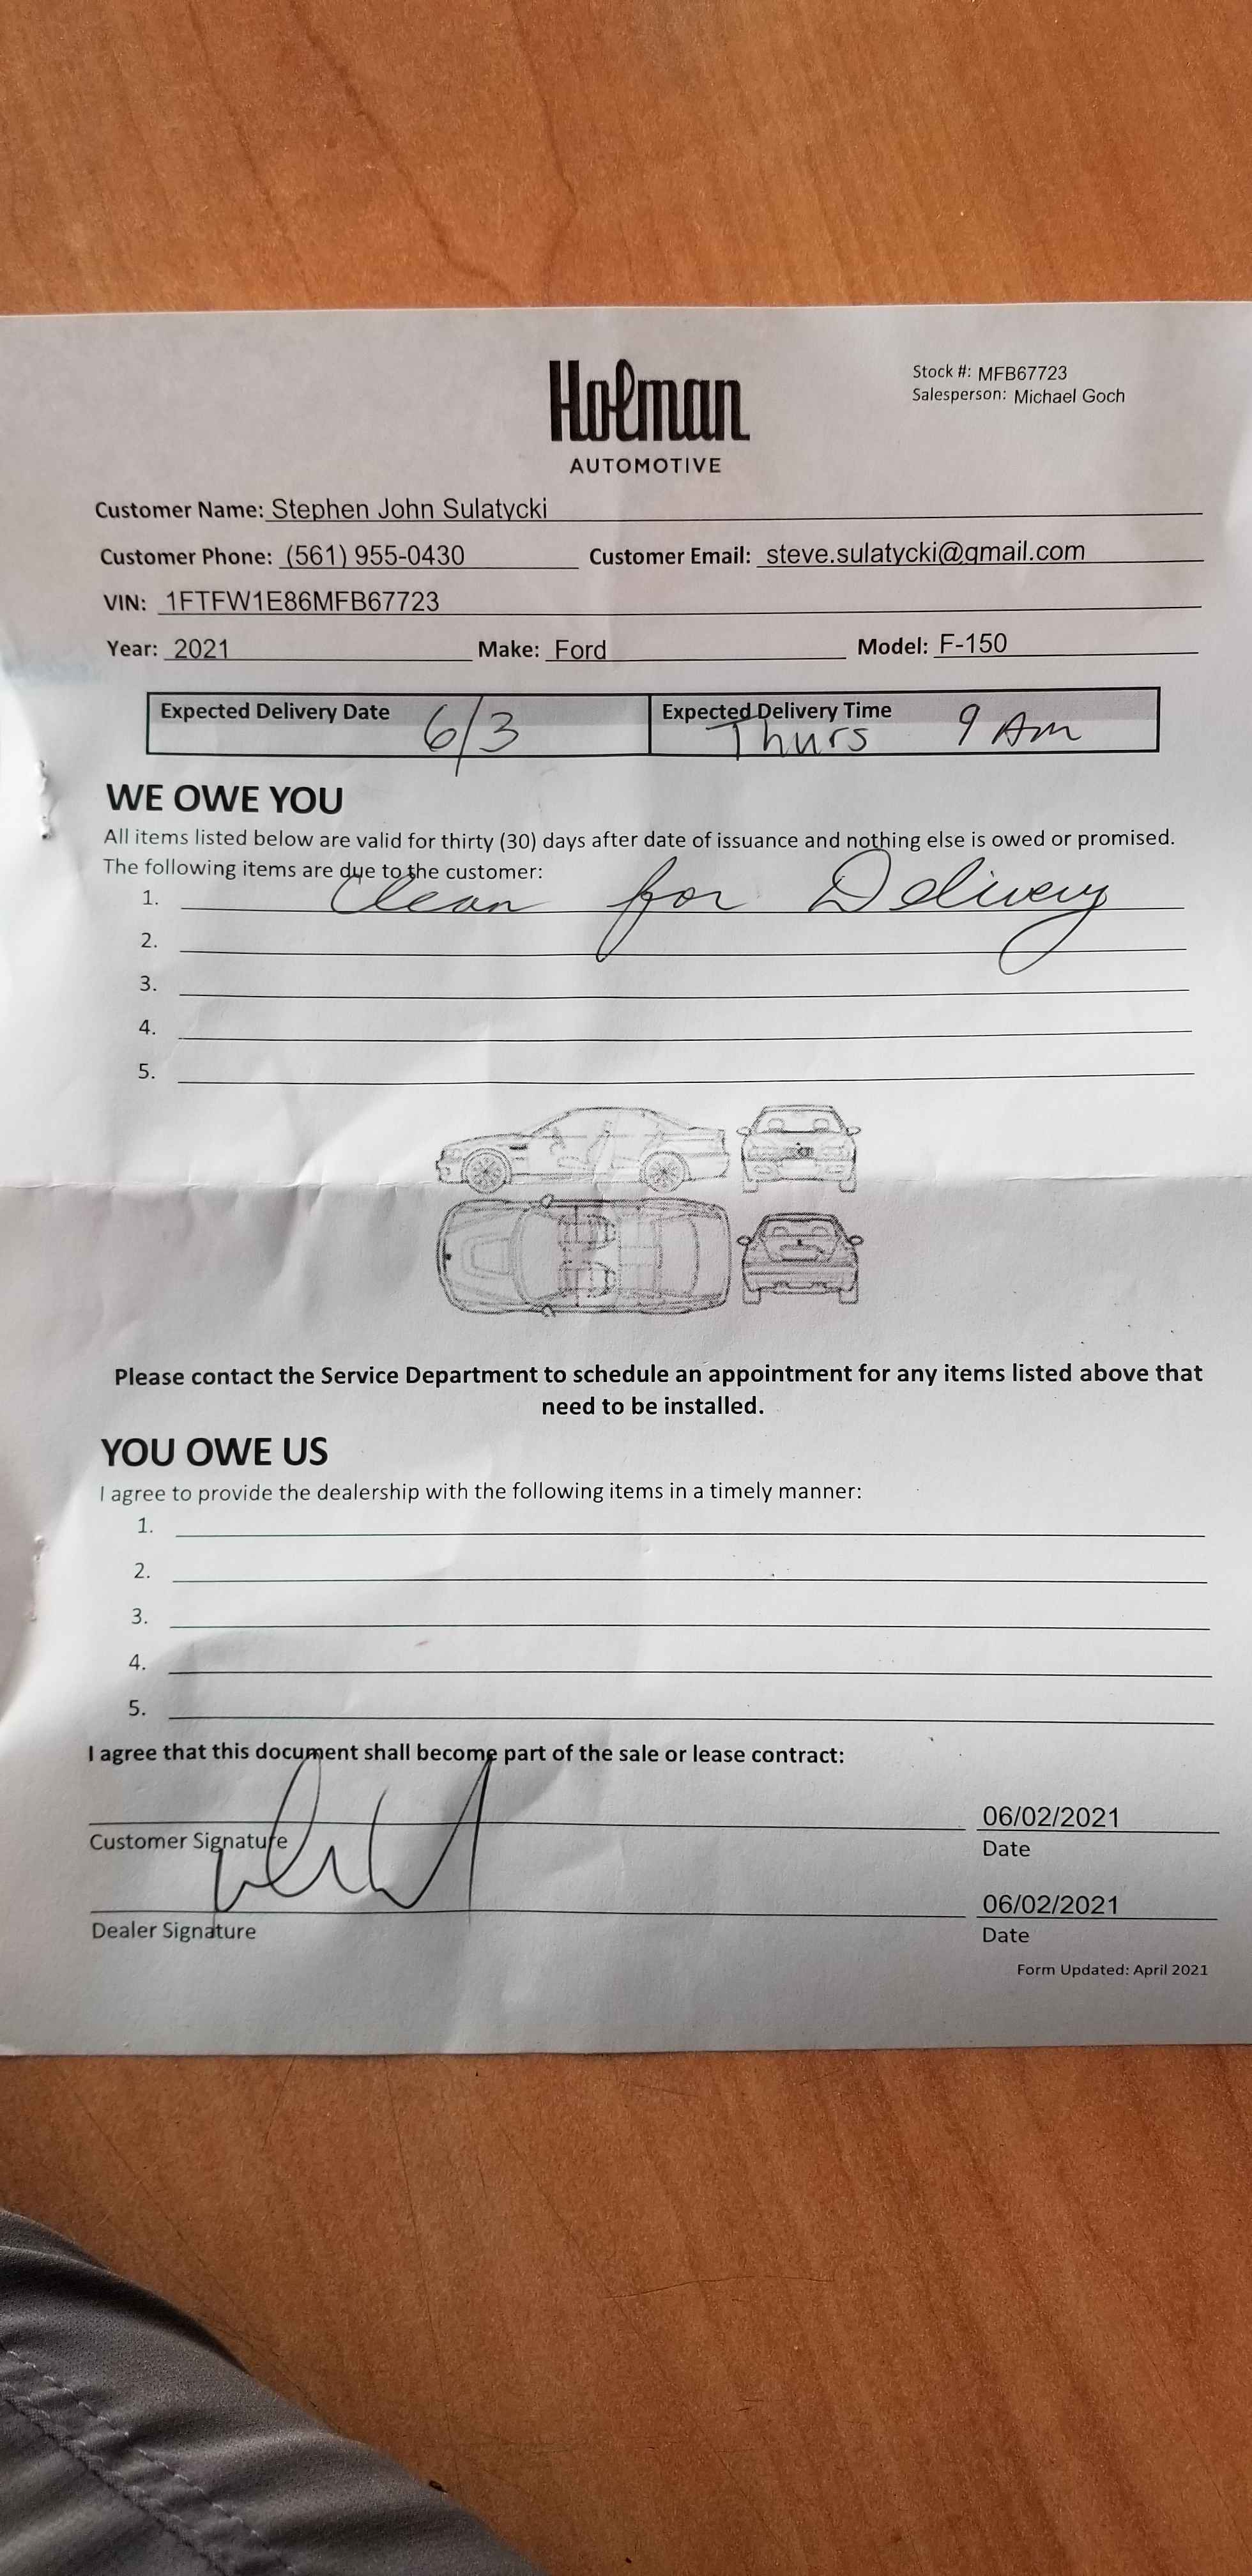 Holman
AUTOMOTIVE
Stock #: MFB67723
Salesperson: Michael Goch
Customer Name: Stephen John Sulatycki
Customer Phone: (561) 955-0430 Customer Email: steve.sulatycki@gmail.com
VIN: 1FTFW1E86MFB67723
Year: 2021 Make: Ford Model: F-150
Expected Delivery Date 6/3 Expected Delivery Time Thurs 9 Am
WE OWE YOU
All items listed below are valid for thirty (30) days after date of issuance and nothing else is owed or promised.
The following items are due to the customer:
1. Clean for Delivery
2.
3.
4.
5.
Please contact the Service Department to schedule an appointment for any items listed above that
need to be installed.
YOU OWE US
I agree to provide the dealership with the following items in a timely manner:
1.
2.
3.
4.
5.
I agree that this document shall become part of the sale or lease contract:
06/02/2021
Customer Signature Date
06/02/2021
Dealer Signature Date
Form Updated: April 2021